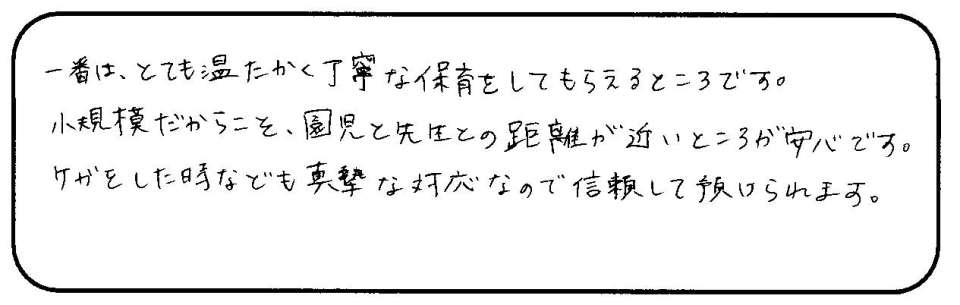 一番は、とても温たかく丁寧な保育をしてもらえるところです。
小規模だからこそ、園児と先生との距離が近いところが安心です。
ケガをした時なども真摯な対応なので信頼して預けられます。